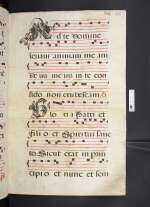 Ad te Domine
leuaui animam me am
De us me us in te con
fido non erubescam.
Glo ri a Patri et
Fili o et Spiritui San
to Sicut erat in prin
cipi o et nunc et sem